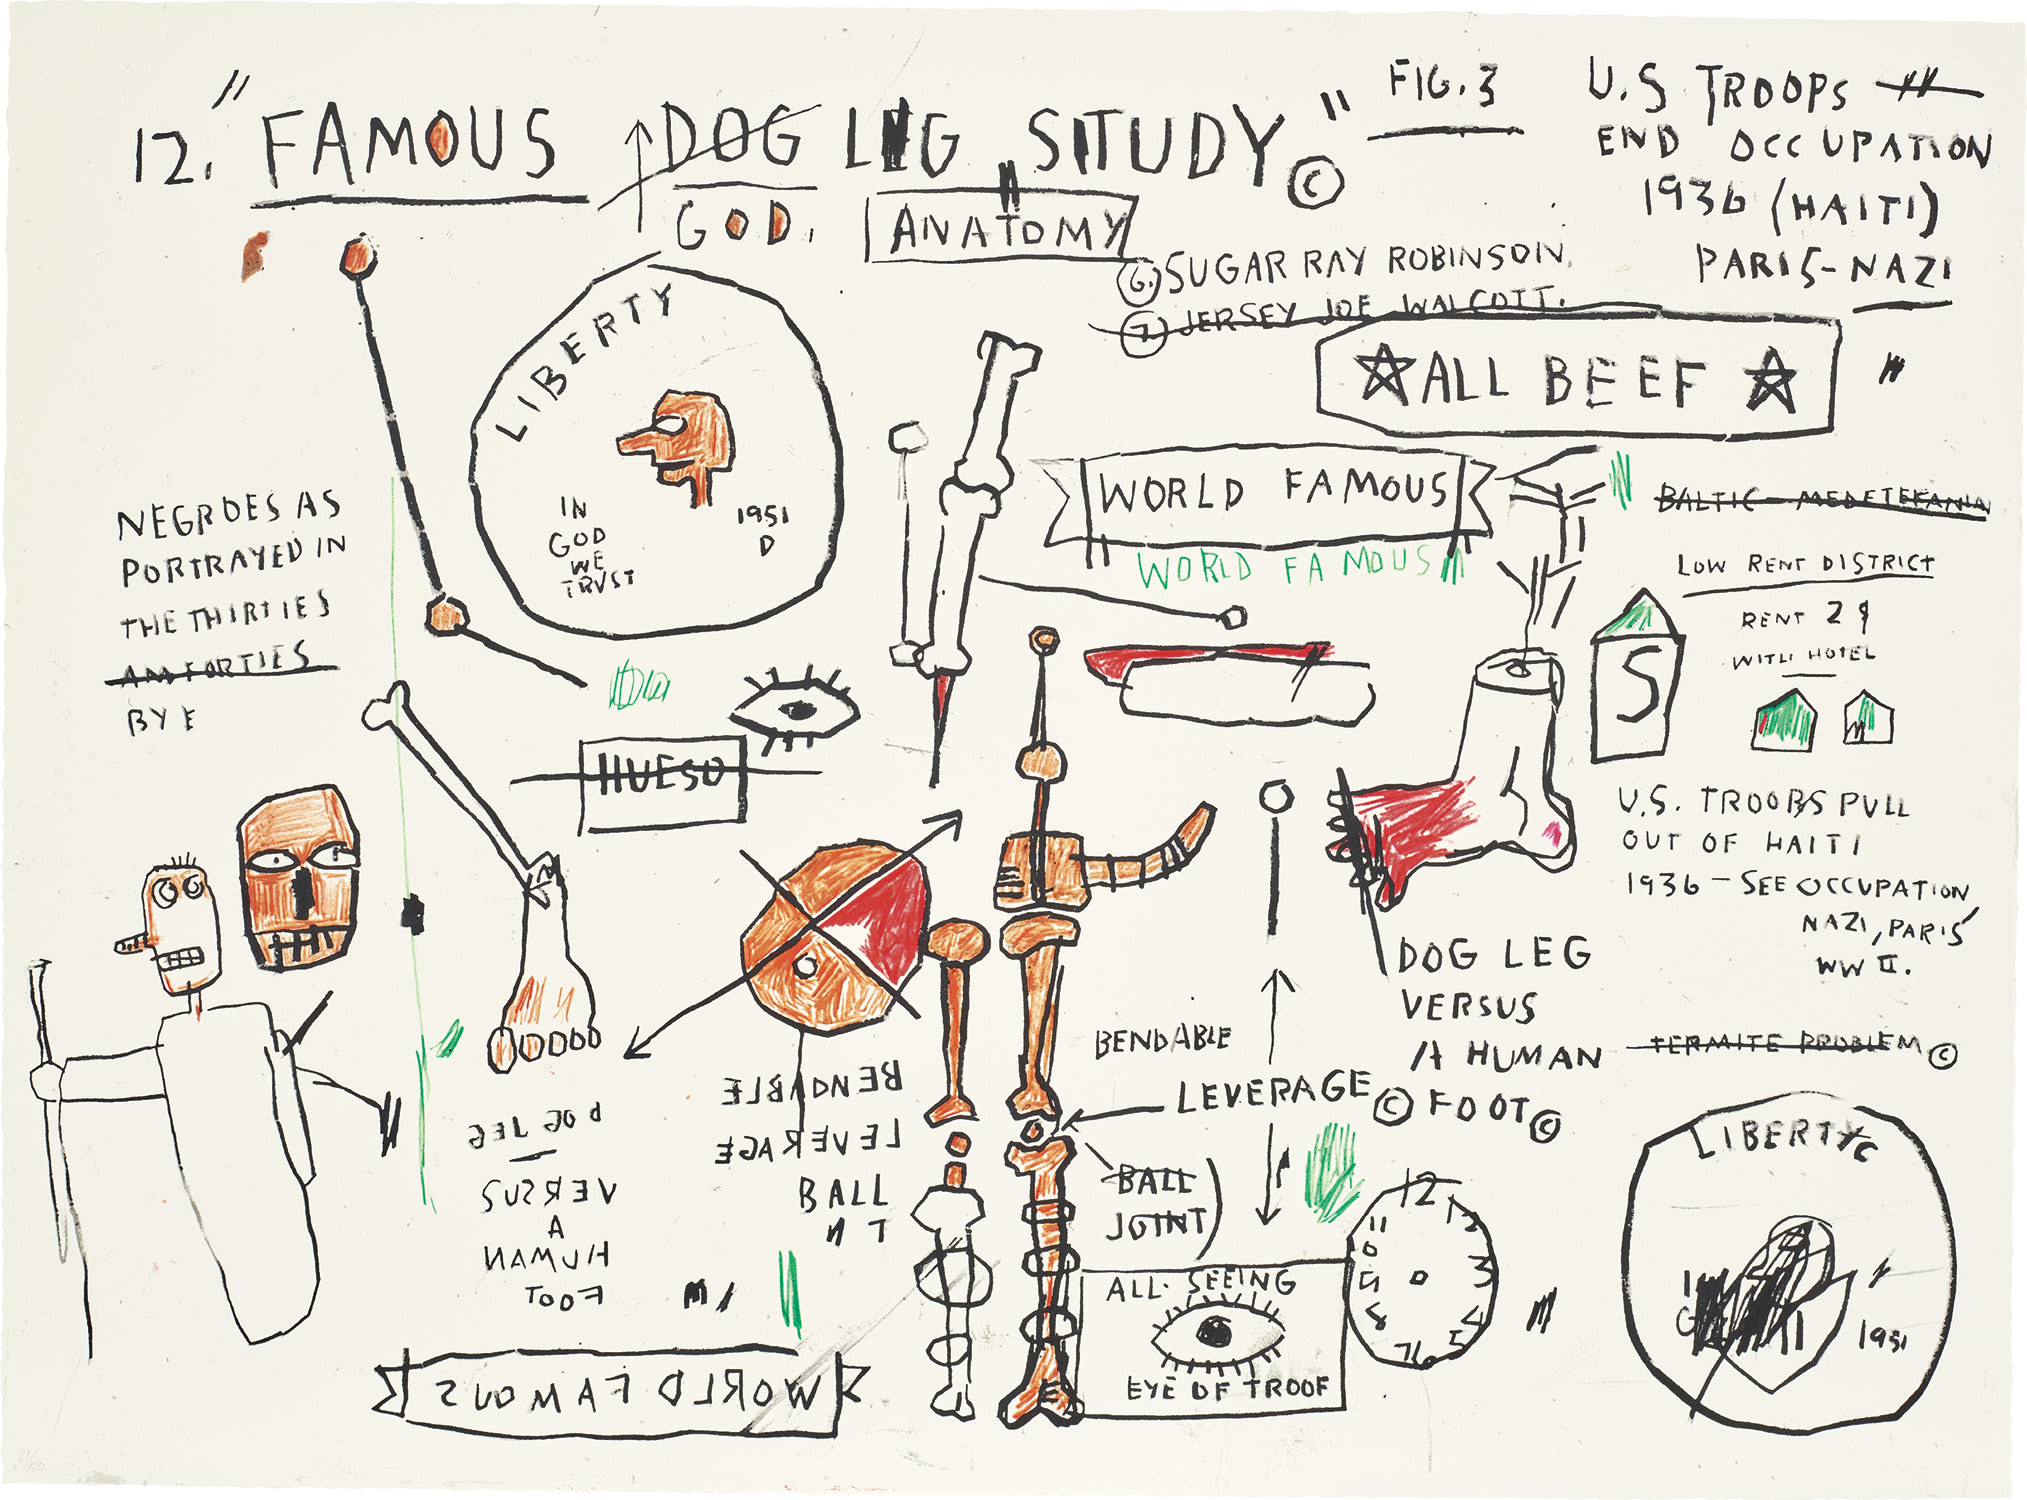 12. "FAMOUS DOG LEG STUDY" ©
GOD.
ANATOMY
FIG. 3
U.S TROOPS
END OCCUPATION
1936 (HAITI)
PARIS-NAZI
6. SUGAR RAY ROBINSON.
7. JERSEY JOE WALCOTT.
☆ALL BEEF☆
LIBERTY
IN
GOD
WE
TRUST
1951
D
WORLD FAMOUS
WORLD FAMOUS
BALTIC - MEDETERANIA
LOW RENT DISTRICT
RENT 2$
WITH HOTEL
S
NEGROES AS
PORTRAYED IN
THE THIRTIES
AN FORTIES
BY E
HUESO
U.S. TROOPS PULL
OUT OF HAITI
1936 - SEE OCCUPATION
NAZI, PARIS
WW II.
TERMITE PROBLEM ©
DOG LEG
VERSUS
A HUMAN
FOOT ©
BENDABLE
LEVERAGE ©
BALL
JOINT)
BENDABLE
LEVERAGE
BALL
DOG LEG
VERSUS
A
HUMAN
FOOT
WORLD FAMOUS
ALL-SEEING
EYE OF TROOF
12
11
3
LIBERTY
1951